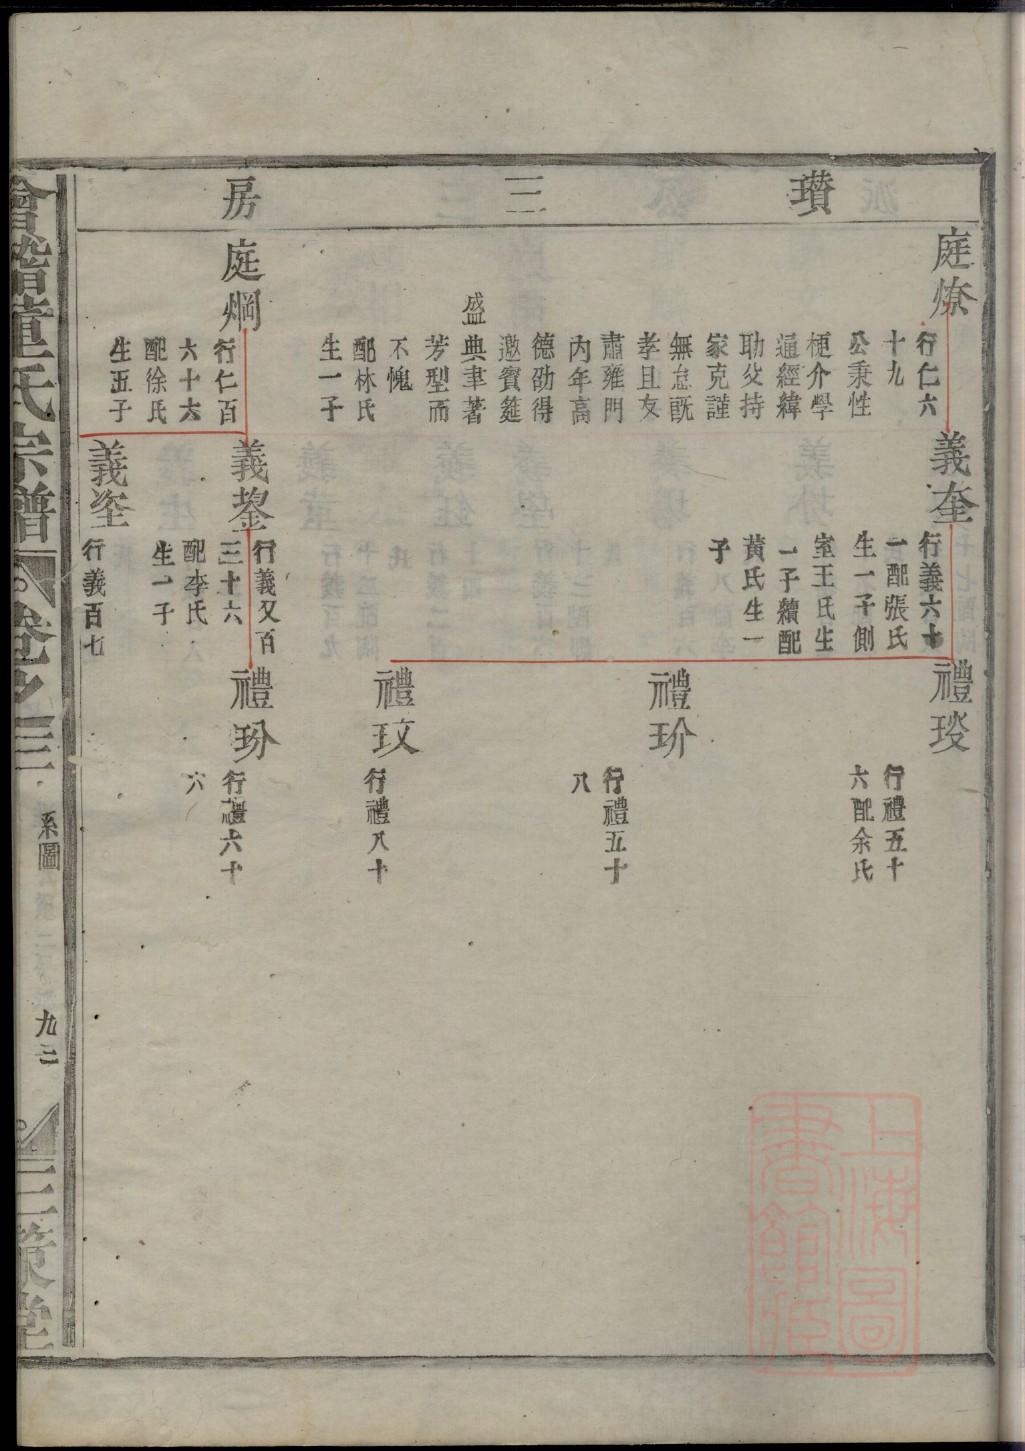 瓚三房
庭燎
行仁六
十九
公秉性
梗介學
通經緯
助父持
家克謹
無怠既
孝且友
肅雍門
內年高
德劭得
邀賓筵
盛典聿著
芳型而
不愧
配林氏
生一子
庭焵
行仁百
六十六
配徐氏
生五子
義奎
行義六十
一配張氏
生一子側
室王氏生
一子續配
黃氏生一
子
義
行義又百
三十六
配李氏
生一子
義
行義百七
禮琰
行禮五十
六配余氏
禮玠
行禮五十
八
禮玟
行禮八十
禮玢
行禮六十
六
會稽董氏宗譜
卷之三
系圖
九三
三策堂
上海圖書館藏